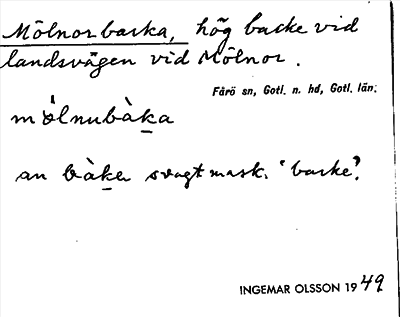 Mölnorbacka, hög backe vid
landsvägen vid Mölnor.
Fårö sn, Gotl. n. hd, Gotl. län.
mölnubàka
an bàka svagt mask. 'backe'.
INGEMAR OLSSON 1949